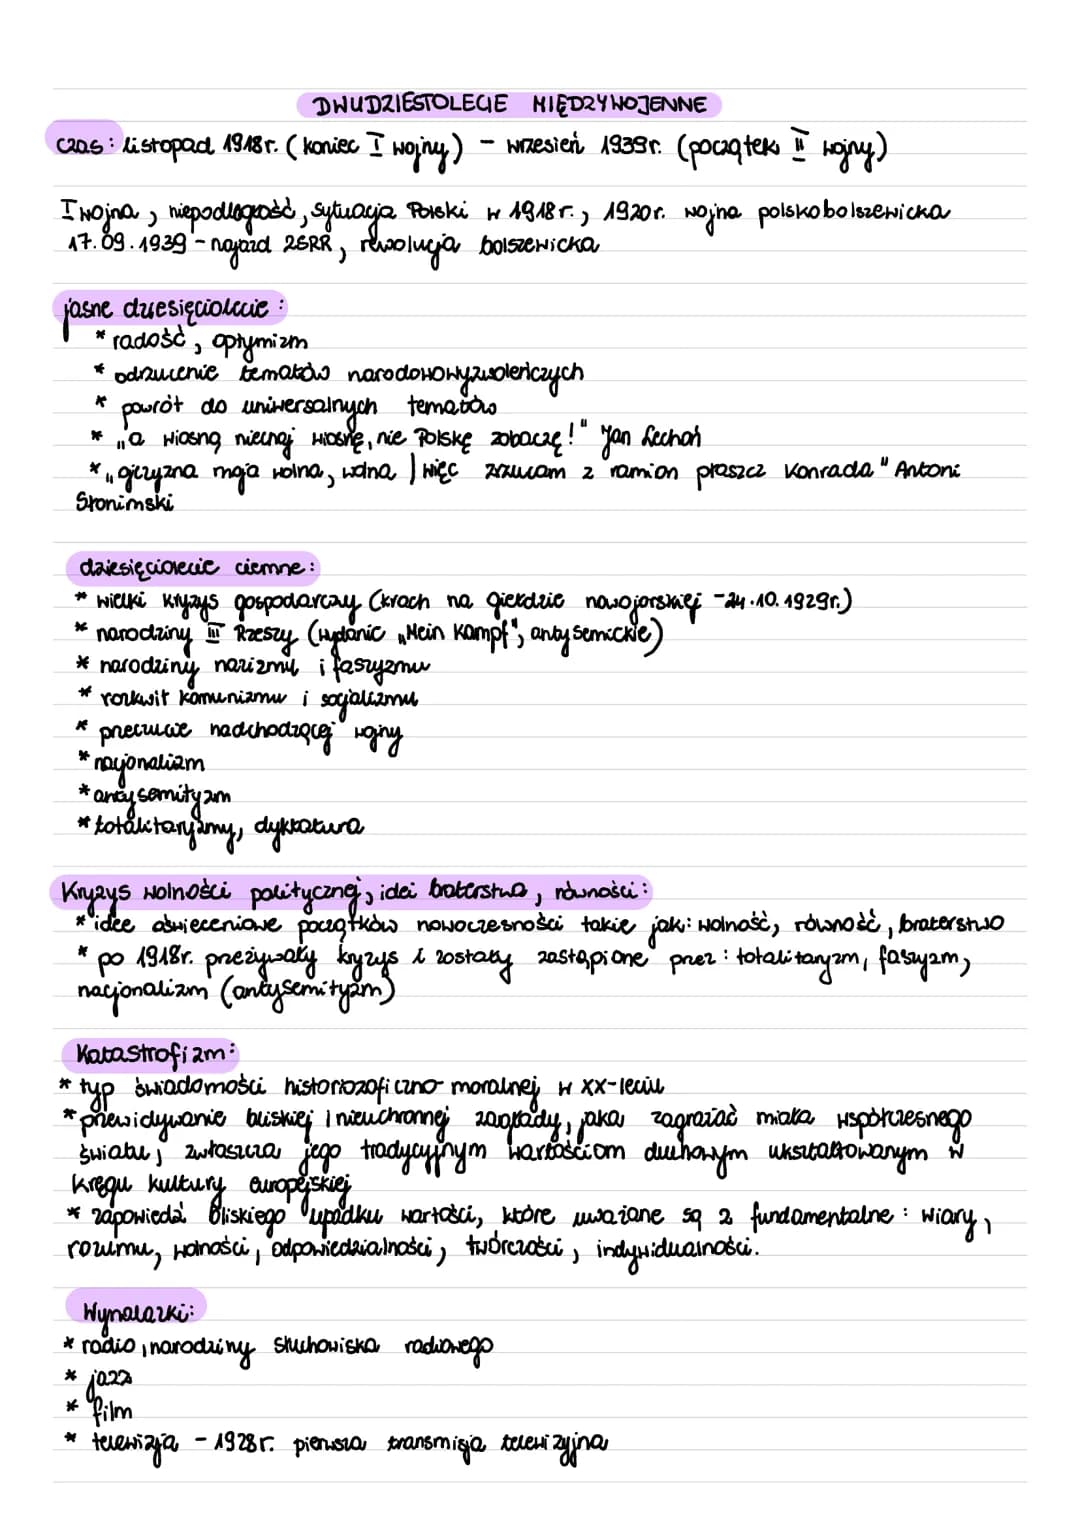 DWUDZIESTOLECIE MIĘDZYWOJENNE
czas: listopad 1918r. (koniec I wojny) - wrzesień 1939r. (początek II wojny)
I wojna, niepodległość, sytuacja Polski w 1918r., 1920r. wojna polskobolszewicka
17.09.1939 - najazd ZSRR, rewolucja bolszewicka
jasne dziesięciolecie:
* radość, optymizm
* odrzucenie tematów narodowowyzwoleńczych
* powrót do uniwersalnych tematów
* „a wiosną niechaj wiosnę, nie Polskę zobaczę!" Jan Lechoń
* „ojczyzna moja wolna, wolna / więc zrzucam z ramion płaszcz Konrada" Antoni
Słonimski
dziesięciolecie ciemne:
* wielki kryzys gospodarczy (krach na giełdzie nowojorskiej - 24.10.1929r.)
* narodziny III Rzeszy (wydanie „Mein Kampf", antysemickie)
* narodziny nazizmu i faszyzmu
* rozkwit komunizmu i socjalizmu
* przeczucie nadchodzącej wojny
* nacjonalizm
* antysemityzm
* totalitaryzmy, dyktatura
Kryzys wolności politycznej, idei braterstwa, równości:
* idee oświeceniowe początków nowoczesności takie jak: wolność, równość, braterstwo
* po 1918r. przeżywały kryzys i zostały zastąpione przez: totalitaryzm, faszyzm,
nacjonalizm (antysemityzm)
Katastrofizm:
* typ świadomości historiozoficzno-moralnej w XX-leciu
* przewidywanie bliskiej i nieuchronnej zagłady, jaka zagrażać miała współczesnego
światu, zwłaszcza jego tradycyjnym wartościom duchowym ukształtowanym w
kręgu kultury europejskiej
* zapowiedź bliskiego upadku wartości, które uważane są z fundamentalne: wiary,
rozumu, wolności, odpowiedzialności, twórczości, indywidualności.
Wynalazki:
* radio, narodziny słuchowiska radiowego
* jazz
* film
* telewizja - 1928r. pierwsza transmisja telewizyjna